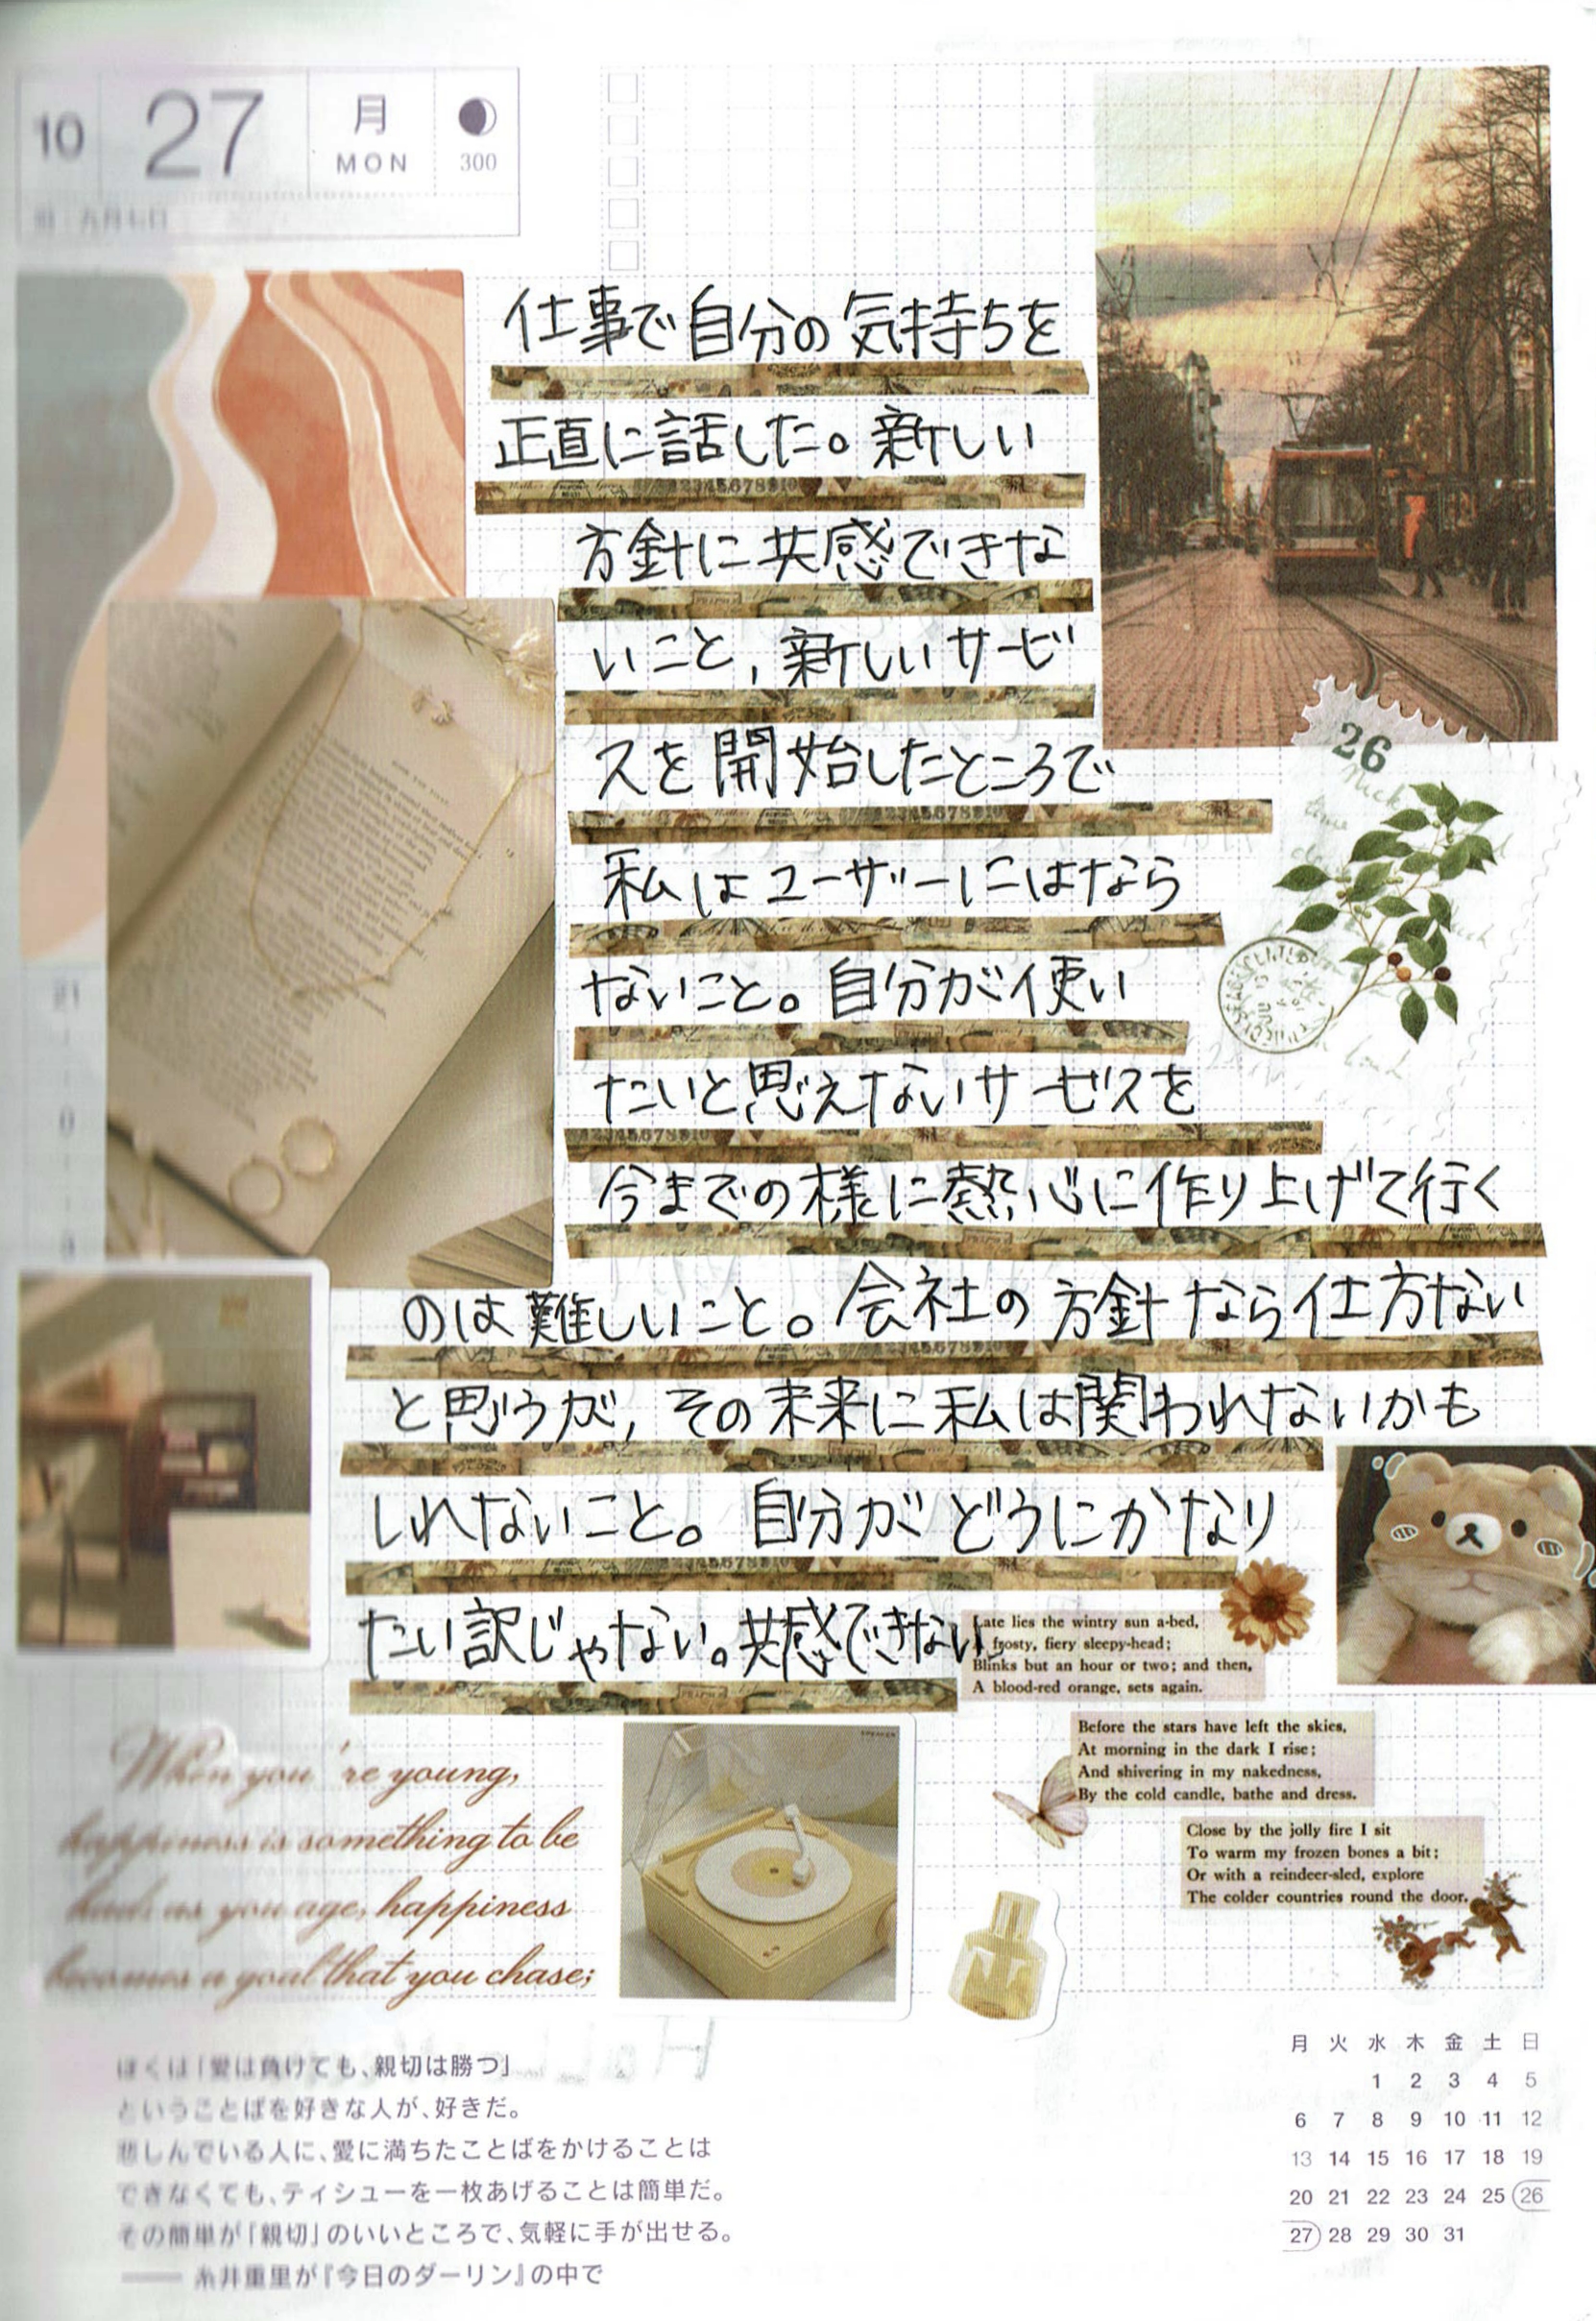 10
27
月
MON
300
仕事で自分の気持ちを
正直に話した。新しい
方針に共感できな
いこと,新しいサービ
スを開始したところで
私はユーザーにはなら
ないこと。自分が使い
たいと思えないサービスを
今までの様に熱心に作り上げて行く
のは難しいこと。会社の方針なら仕方ない
と思うが,その未来に私は関われないかも
しれないこと。自分がどうにかなり
たい訳じゃない。共感できない。
26
21
0
3
Late lies the wintry sun a-bed,
A frosty, fiery sleepy-head;
Blinks but an hour or two; and then,
A blood-red orange, sets again.
Before the stars have left the skies,
At morning in the dark I rise;
And shivering in my nakedness,
By the cold candle, bathe and dress.
Close by the jolly fire I sit
To warm my frozen bones a bit;
Or with a reindeer-sled, explore
The colder countries round the door.
When you're young,
happiness is something to be
had: as you age, happiness
becomes a goal that you chase;
SPEAKER
ぼくは「愛は負けても、親切は勝つ」
ということばを好きな人が、好きだ。
悲しんでいる人に、愛に満ちたことばをかけることは
できなくても、ティシューを一枚あげることは簡単だ。
その簡単が「親切」のいいところで、気軽に手が出せる。
── 糸井重里が『今日のダーリン』の中で
月 火 水 木 金 土 日
1 2 3 4 5
6 7 8 9 10 11 12
13 14 15 16 17 18 19
20 21 22 23 24 25 26
27 28 29 30 31